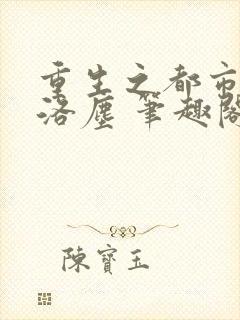 重生之都市
洛塵 筆趣閣
陳寶玉